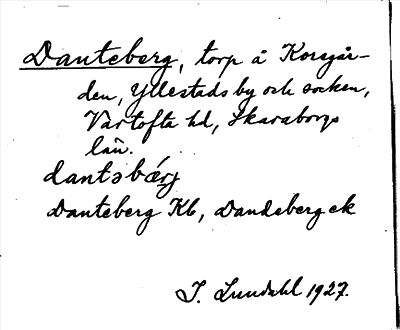 Danteberg, torp å Korsgår-
den, Yllestads by och socken,
Vartofta hd, Skaraborgs
län.
dantəbærj
Danteberg Kb, Dandeberg ek
I. Lundahl 1927.